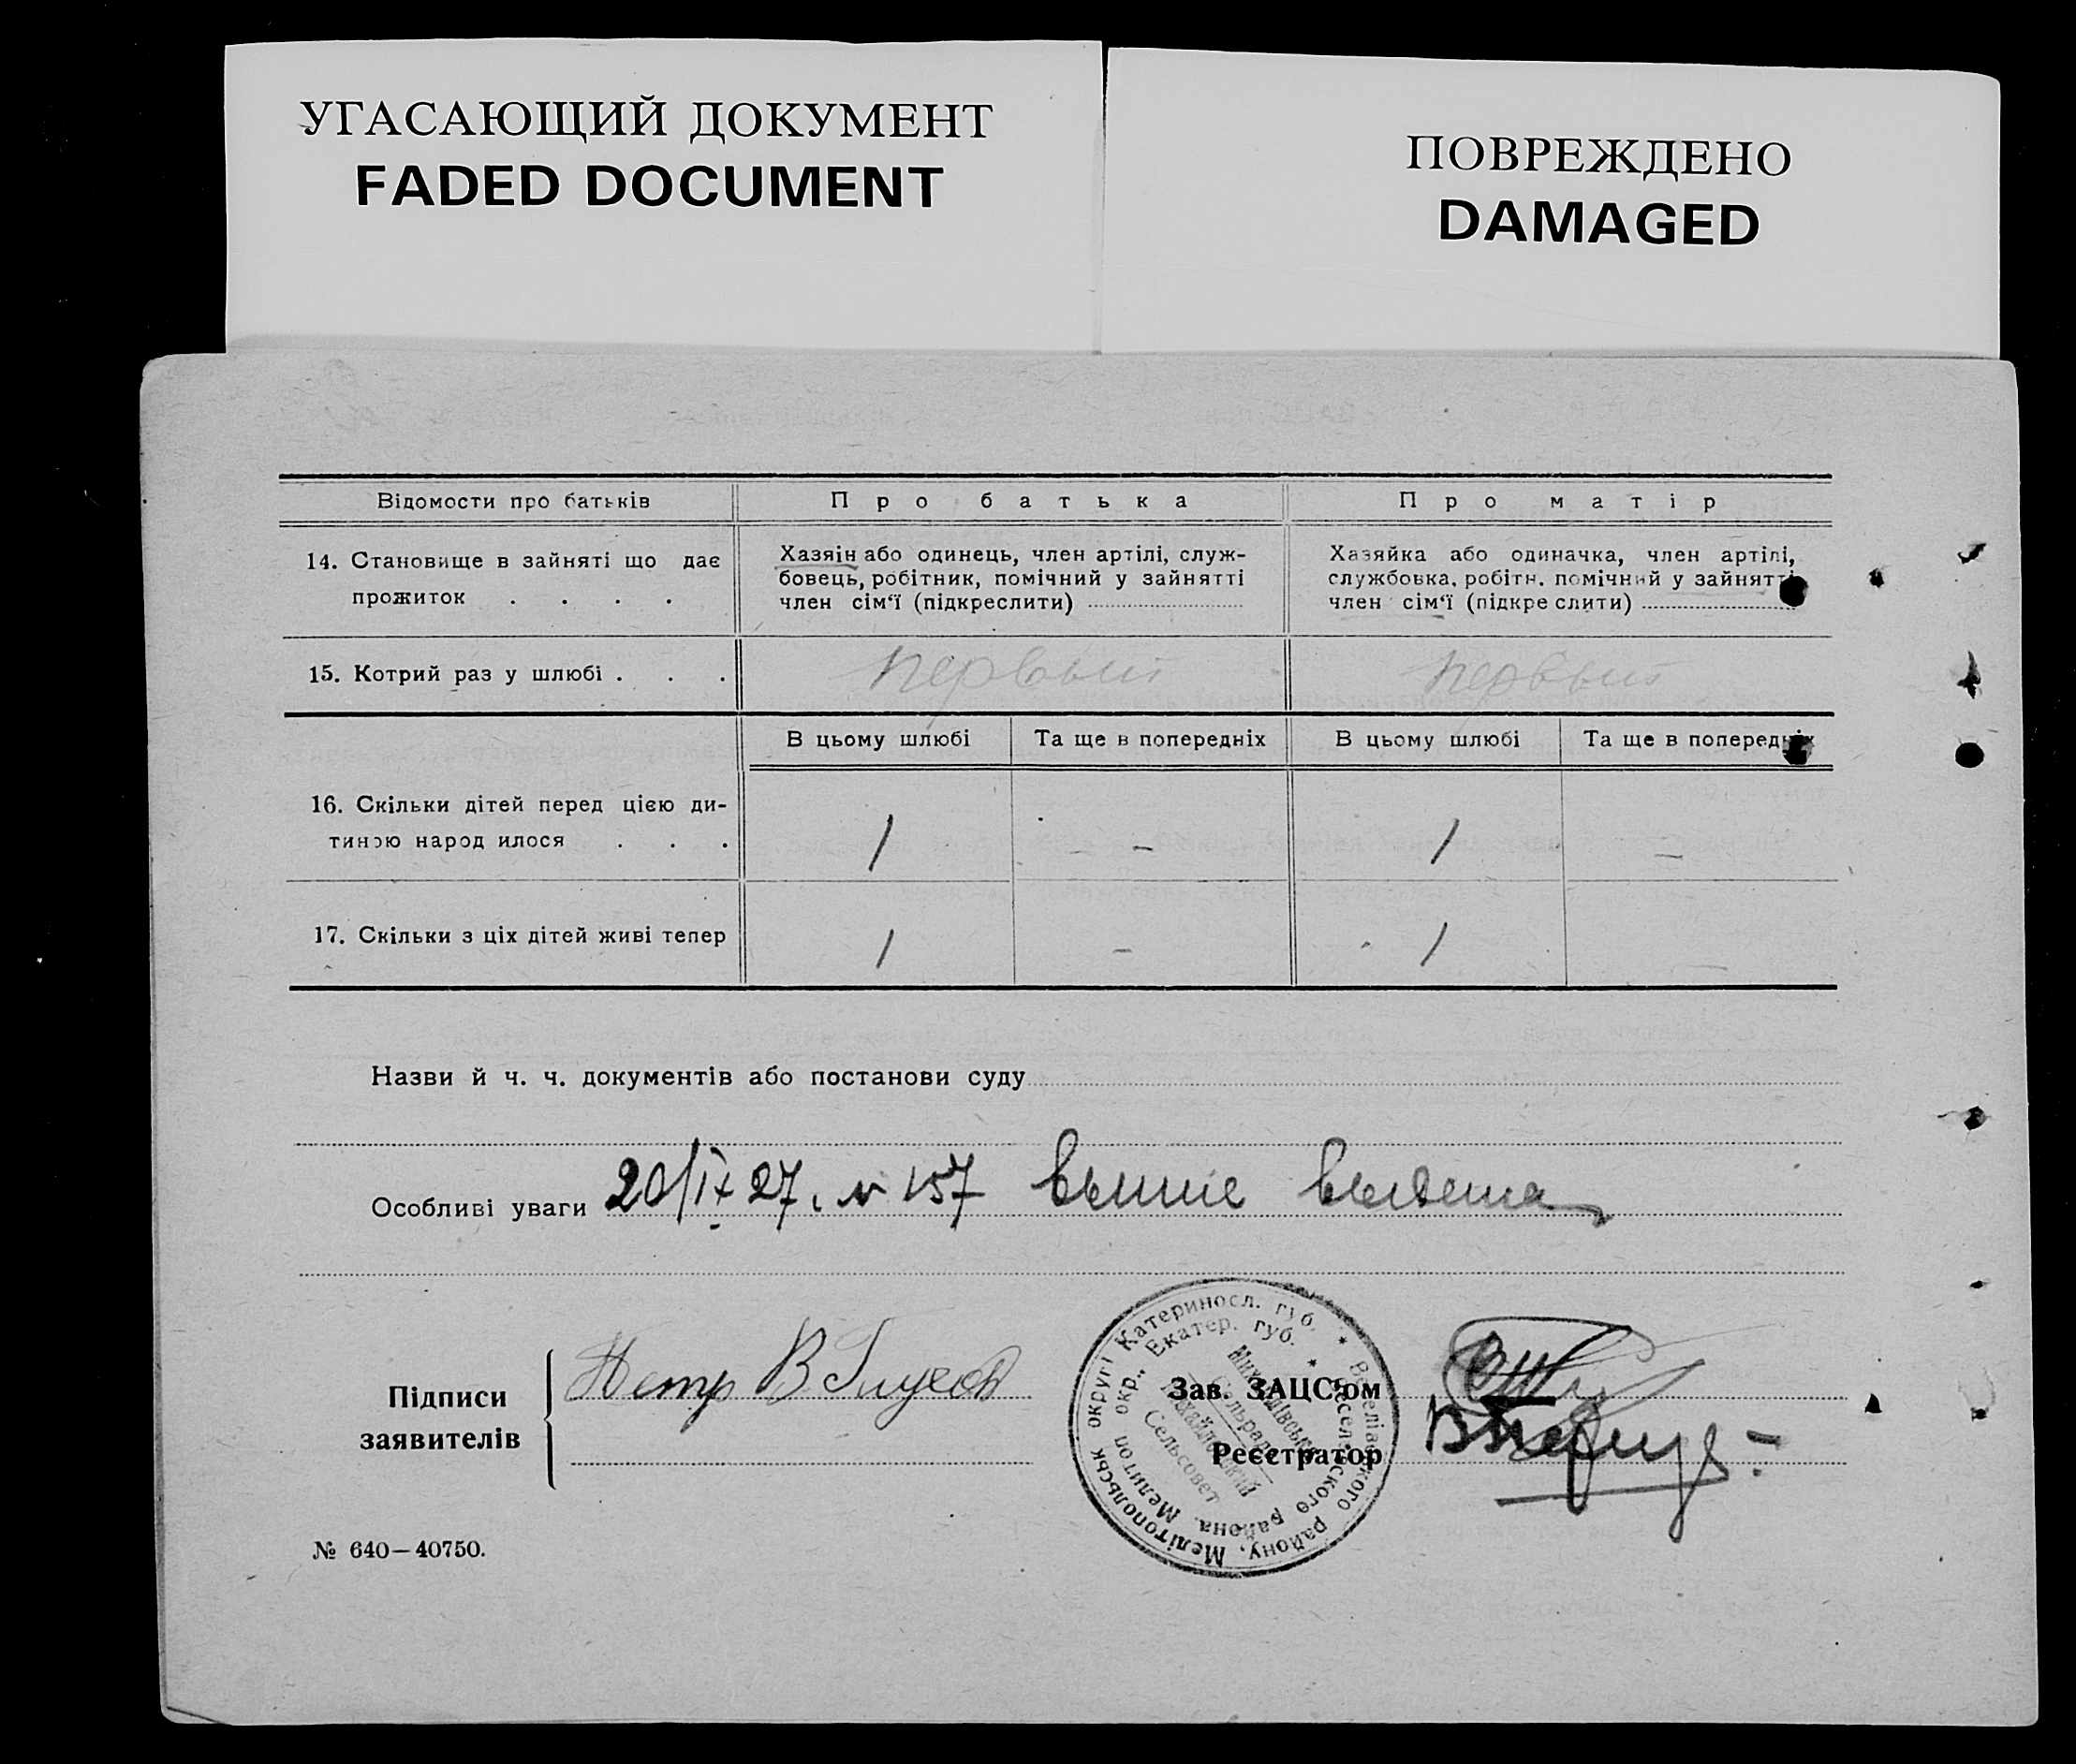 УГАСАЮЩИЙ ДОКУМЕНТ
FADED DOCUMENT
ПОВРЕЖДЕНО
DAMAGED
Відомости про батьків
Про батька
Про матір
14. Становище в зайняті що дає
прожиток . . . .
Хазяін або одинець, член артілі, служ-
бовець, робітник, помічний у зайнятті
член сім‘ї (підкреслити)
Хазяйка або одиначка, член артілі,
службовка, робітн. помічний у зайнятті
член сім‘ї (підкреслити)
15. Котрий раз у шлюбі . . .
первый
первый
В цьому шлюбі
Та ще в попередніх
В цьому шлюбі
Та ще в попередніх
16. Скільки дітей перед цією ди-
тиною народ илося . . .
1
-
1
-
17. Скільки з ціх дітей живі тепер
1
-
1
Назви й ч. ч. документів або постанови суду
Особливі уваги 20/IX 27. № 157
Підписи
заявителів
Петр В
Зав. ЗАЦС‘ом
Реєстратор
Мелітопольськ округі Катериносл. губ. * Веселівського району,
Мелитоп окр., Екатер. губ. * Веселовского района.
Михайлівська
Сільрада
Михайловский
Сельсовет
№ 640—40750.